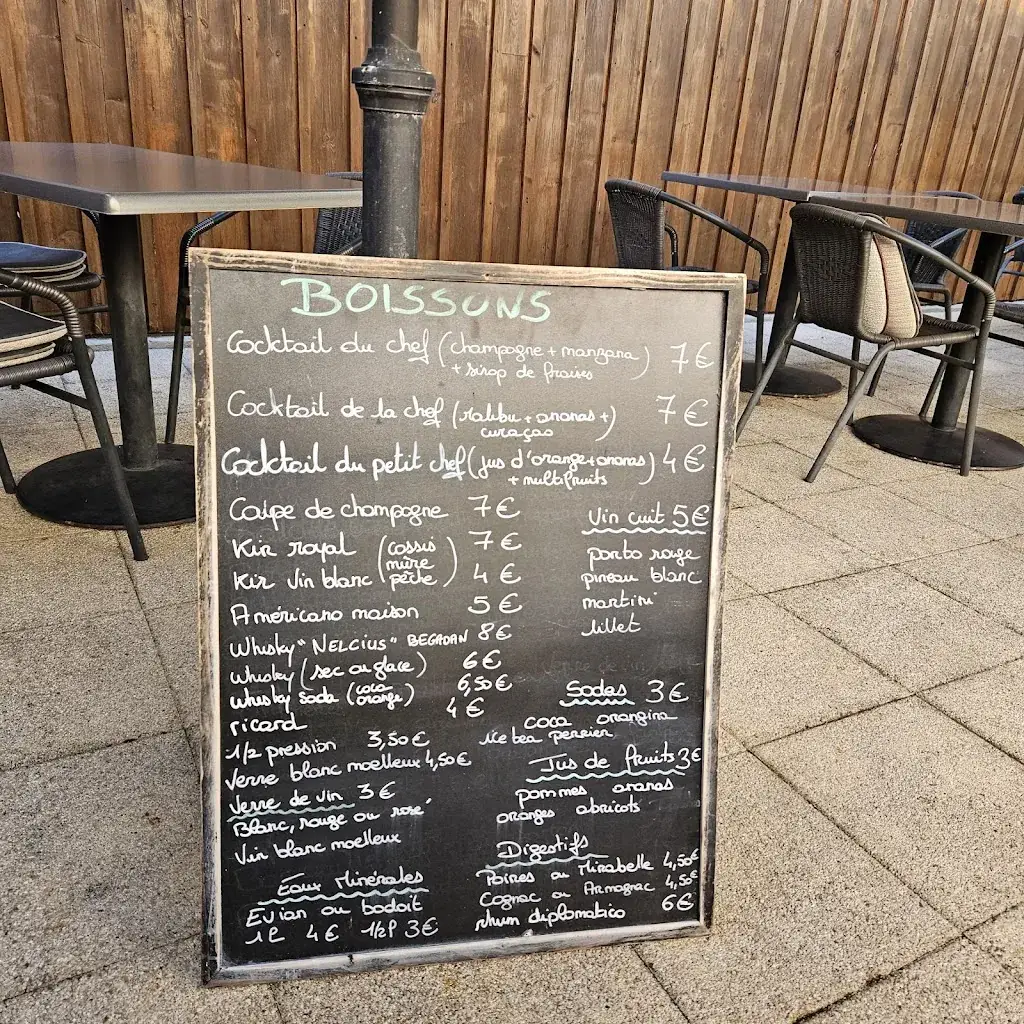 BOISSONS
Cocktail du chef (champagne + manzana) 7€
+ sirop de fraises
Cocktail de la chef (Malibu + ananas +) 7€
curaçao
Cocktail du petit chef (jus d'orange + ananas) 4€
+ multifruits
Coupe de champagne 7€
Kir royal (cassis 7€
mûre
Kir vin blanc pêche) 4€
Américano maison 5€
Whisky "NELCIUS" BEGADAN 8€
Whisky (sec ou glace) 6€
Whisky Soda (coca 6,50€
orange)
ricard 4€
1/2 pression 3,50€
Verre blanc moelleux 4,50€
Verre de vin 3€
Blanc, rouge ou rosé
Vin blanc moelleux
Eaux Minérales
Evian ou badoit
1l 4€ 1/2l 3€
Vin cuit 5€
porto rouge
pineau blanc
martini
lillet
Sodas 3€
coca orangina
ice tea perrier
Jus de fruits 3€
pommes ananas
oranges abricots
Digestifs
Poires ou Mirabelle 4,50€
Cognac ou Armagnac 4,50€
rhum diplomatico 6€